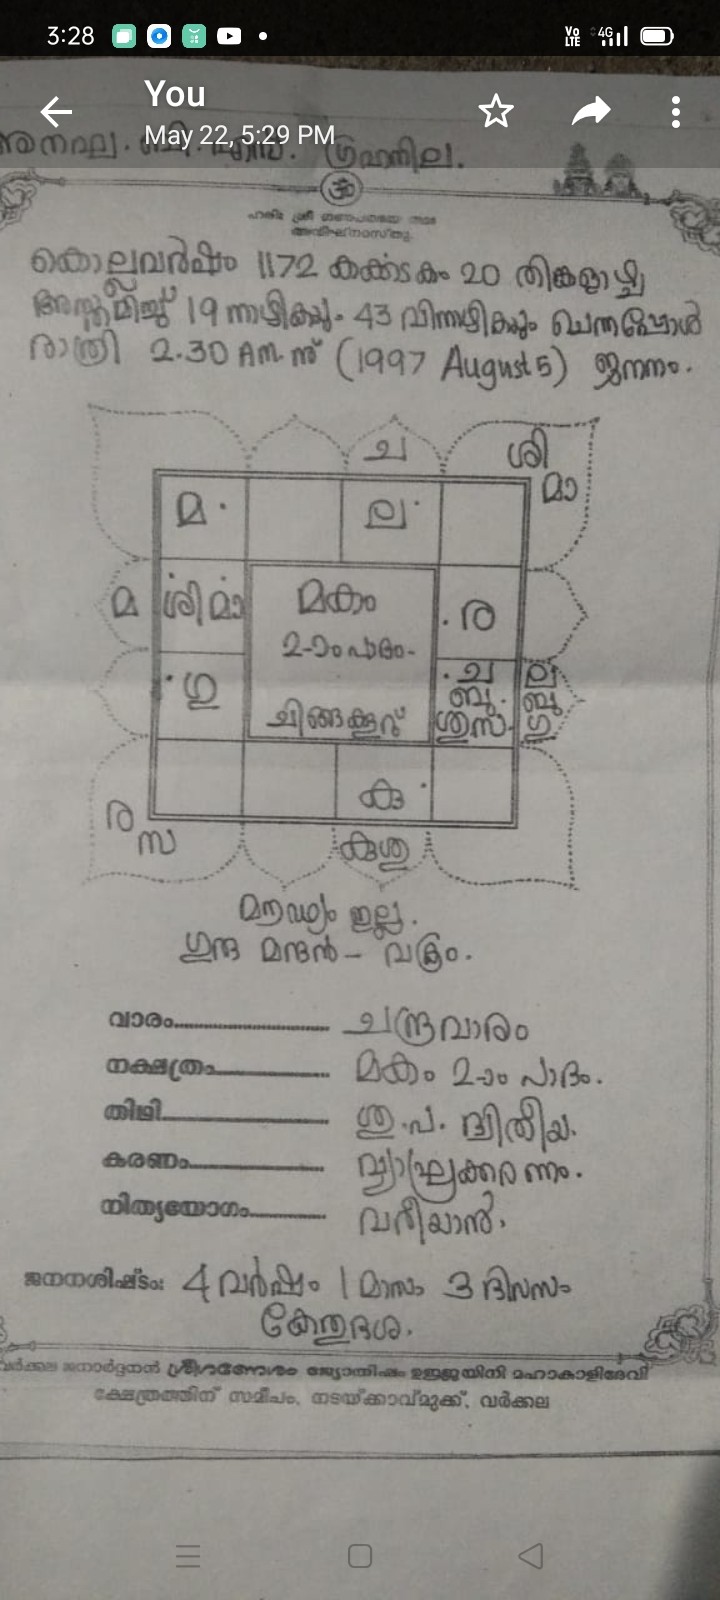 3:28
Vo LTE 4G
You
May 22, 5:29 PM
ഗ്രഹനില.
ഹരിഃ ശ്രീ ഗണപതയെ നമഃ
അവിഘ്നമസ്തു
കൊല്ലവർഷം 1172 കര്‍ക്കടകം 20 തിങ്കളാഴ്ച
അസ്തമിച്ച് 19 നാഴികയും - 43 വിനാഴികയും ചെന്നപ്പോൾ
രാത്രി 2.30 Am. ന് (1997 August 5) ജനനം.
ച ശി
മാ
മ ല
മ ശി മാ മകം ര
2-ാം പാദം-
ഗു ച ല
ബു ബു
ചിങ്ങക്കൂറ് ശു സ ഗു
കു
ര
സ കു ശു
മൗഢ്യം ഇല്ല.
ഗുരു മന്ദൻ - വക്രം.
വാരം ചന്ദ്രവാരം
നക്ഷത്രം മകം 2-ാം പാദം.
തിഥി ശു.പ. ദ്വിതീയ.
കരണം വ്യാഘ്രക്കരണം.
നിത്യയോഗം വരീയാൻ.
ജനനശിഷ്ടം: 4 വർഷം 1 മാസം 3 ദിവസം
കേതുദശ.
വർക്കല ജനാർദ്ദനൻ ശ്രീഗണേശം ജ്യോതിഷം ഉജ്ജയിനി മഹാകാളിദേവി
ക്ഷേത്രത്തിന് സമീപം, നടയ്ക്കാവ്മുക്ക്, വർക്കല